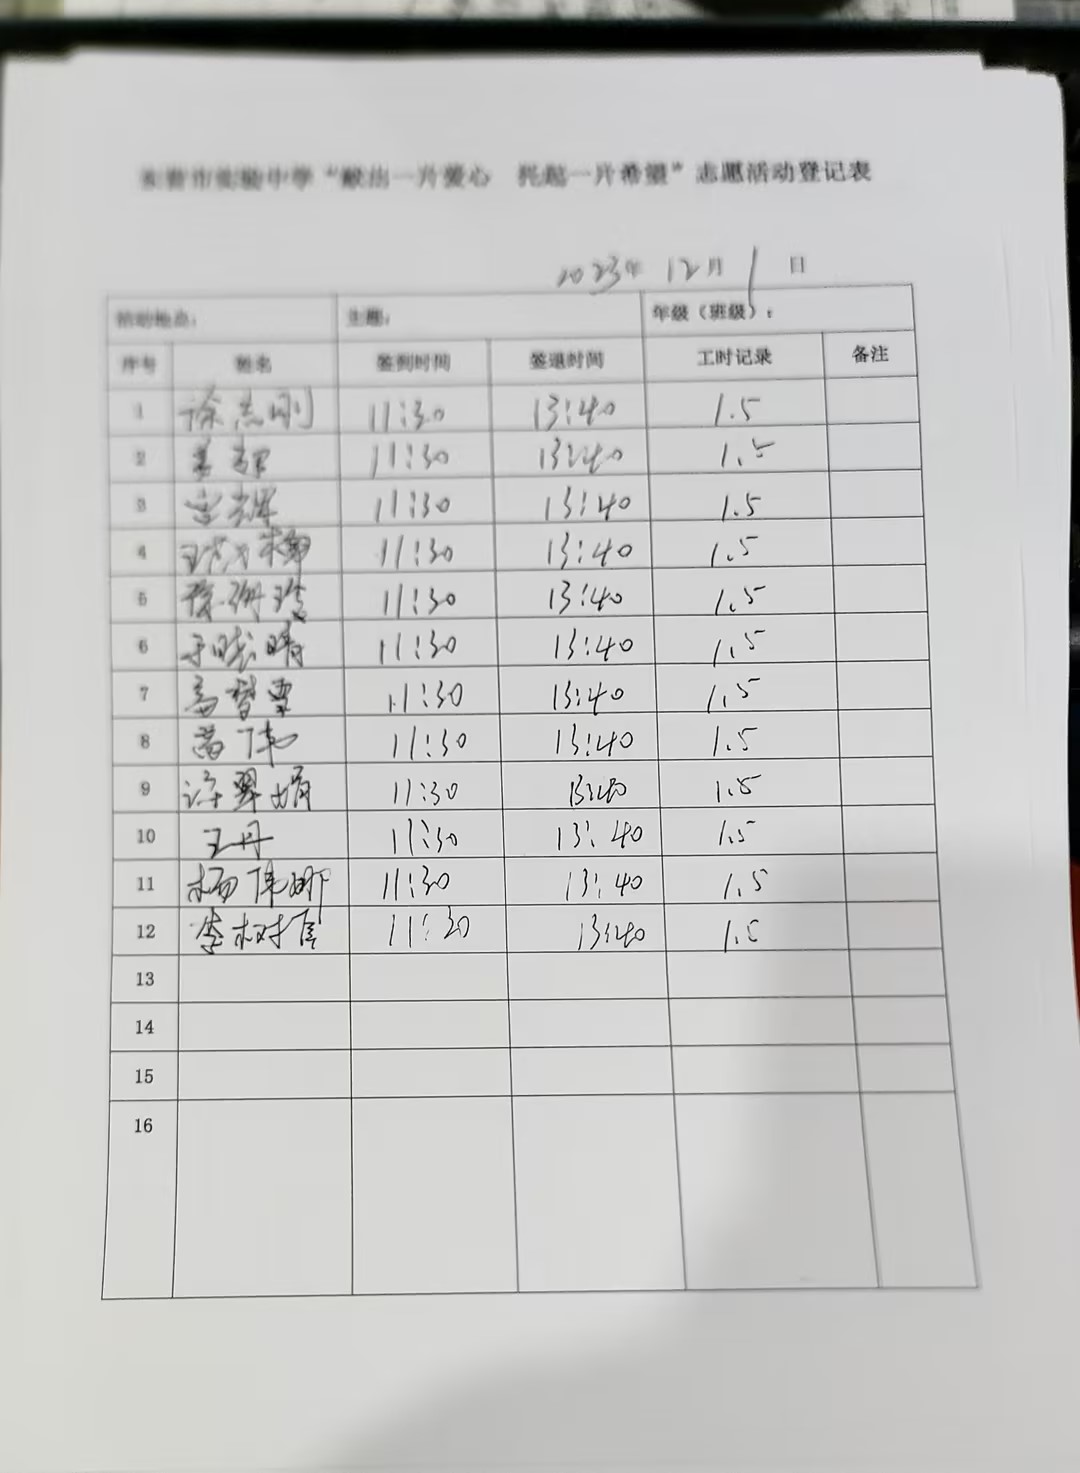 中学“献出一片爱心 托起一片希望”志愿活动登记表
2023年 12月 1日
活动地点： 主题： 年级（班级）：
序号 姓名 签到时间 签退时间 工时记录 备注
1 徐志刚 11:30 13:40 1.5
2 11:30 13:40 1.5
3 宫辉 11:30 13:40 1.5
4 11:30 13:40 1.5
5 11:30 13:40 1.5
6 于晓晴 11:30 13:40 1.5
7 高 11:30 13:40 1.5
8 苗伟 11:30 13:40 1.5
9 翠娟 11:30 13:40 1.5
10 王丹 11:30 13:40 1.5
11 杨伟娜 11:30 13:40 1.5
12 李树 11:30 13:40 1.5
13
14
15
16